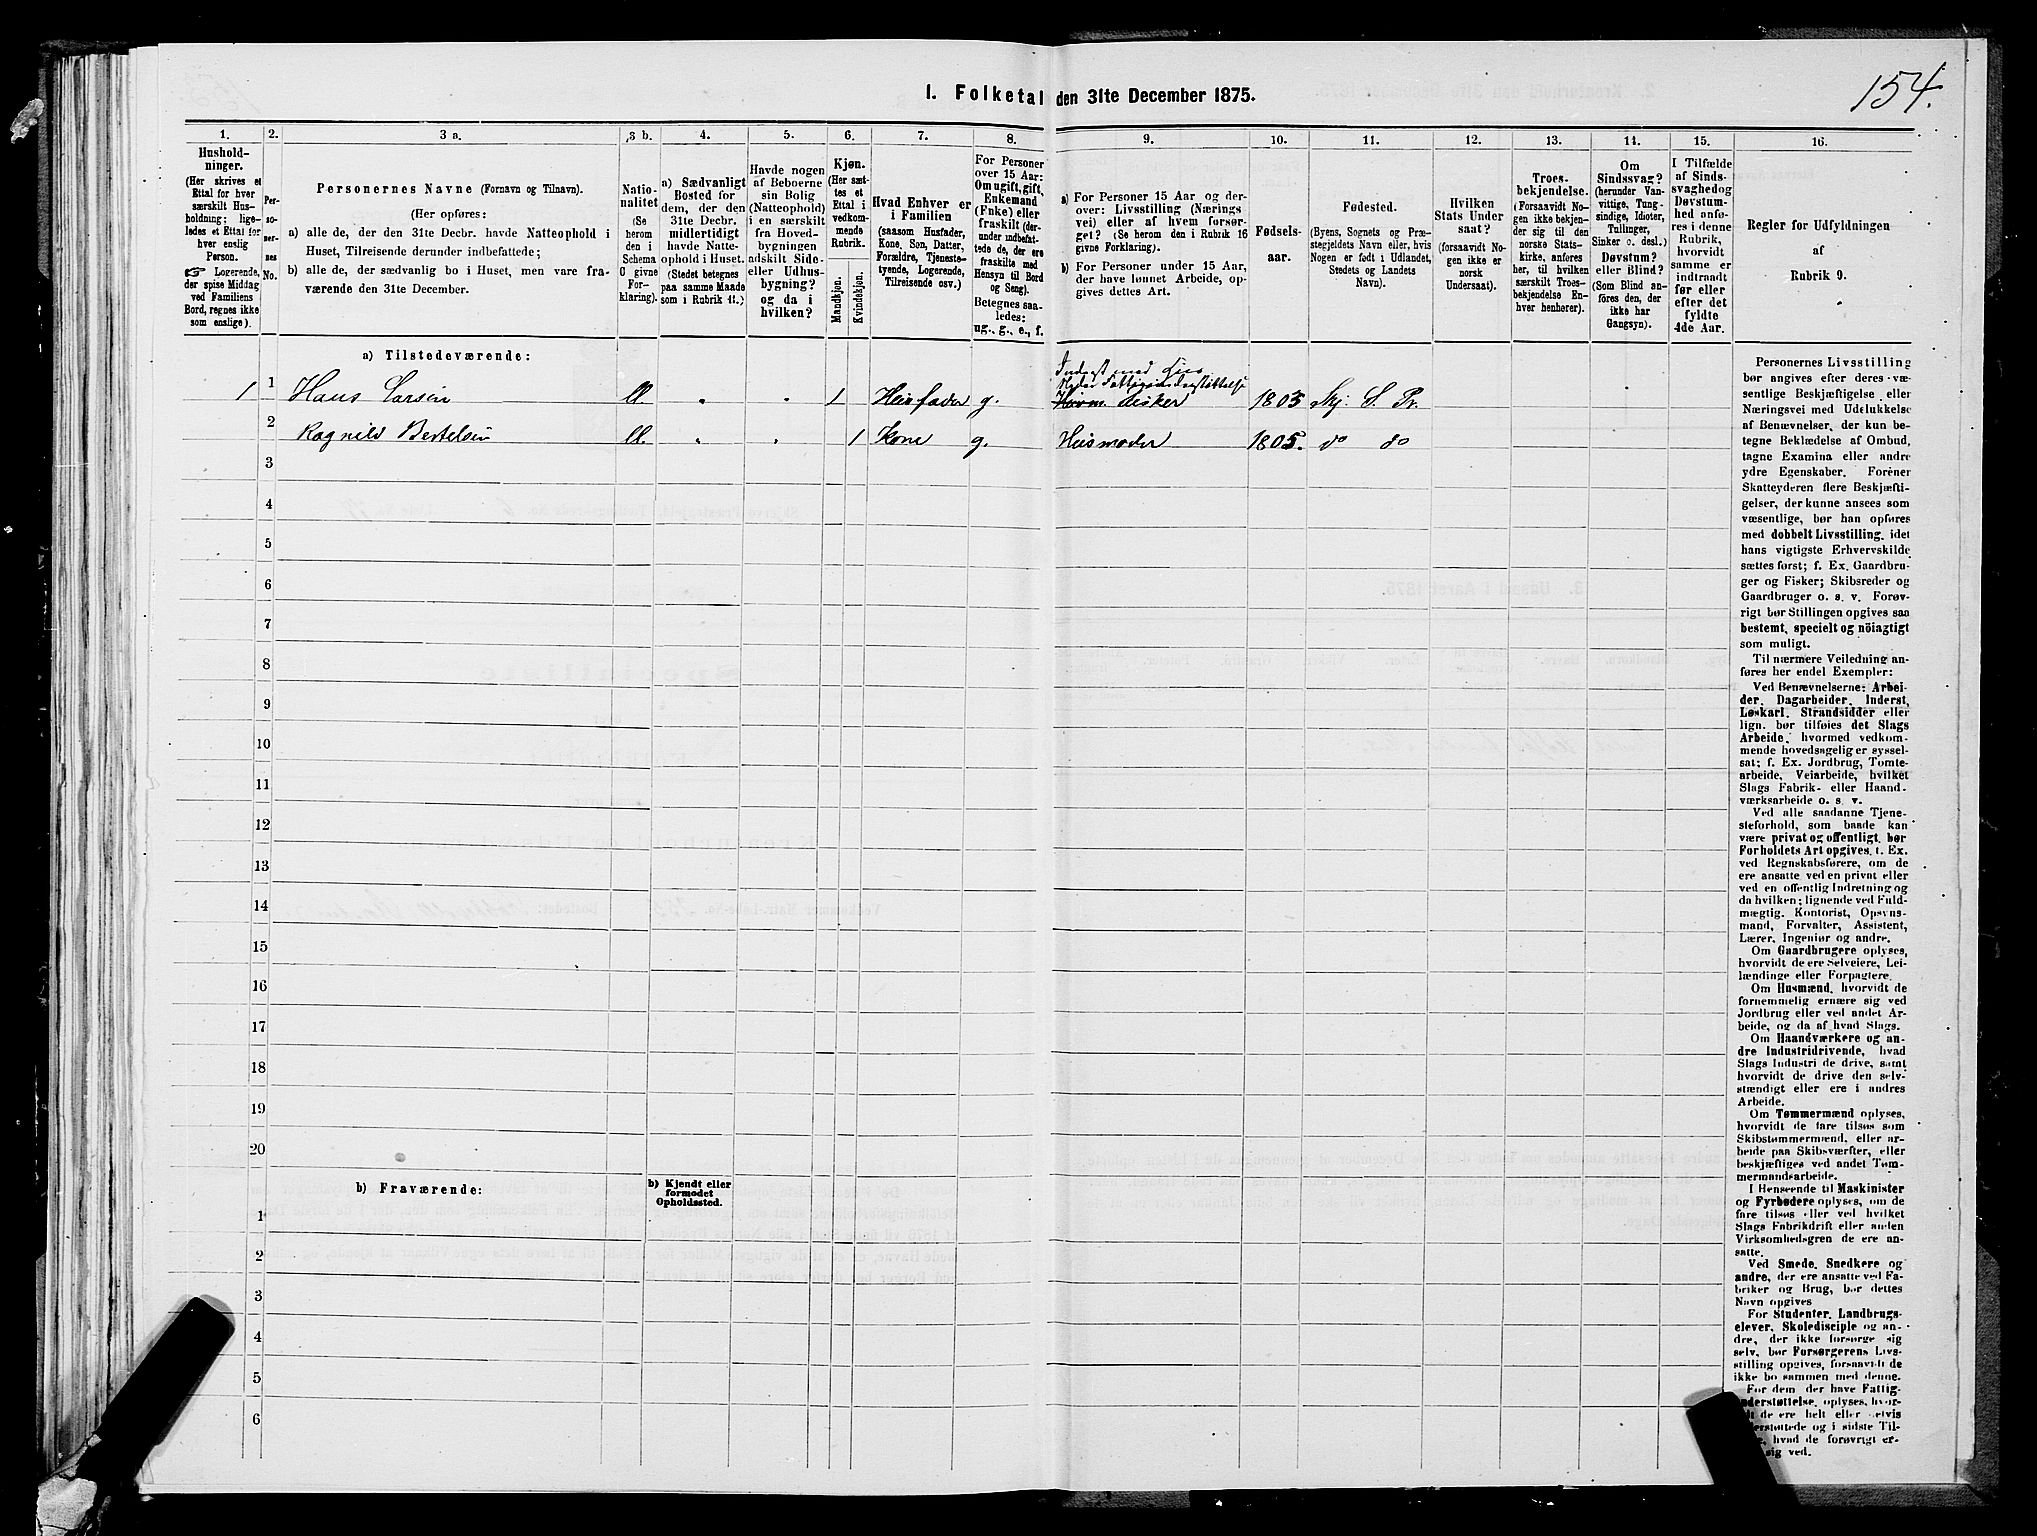 154.
I. Folketal den 31te December 1875.
1. 2. 3 a. 3 b. 4. 5. 6. 7. 8. 9. 10. 11. 12. 13. 14. 15. 16.
Hushold-
ninger.
(Her skrives et
Ettal for hver
særskilt Hus-
holdning; lige-
ledes et Ettal for
hver enslig
Person.
☞ Logerende,
der spise Middag
ved Familiens
Bord, regnes ikke
som enslige).
Per-
so-
ner-
nes
No.
Personernes Navne (Fornavn og Tilnavn).
(Her opføres:
a) alle de, der den 31te Decbr. havde Natteophold i
Huset, Tilreisende derunder indbefattede;
b) alle de, der sædvanlig bo i Huset, men vare fra-
værende den 31te December.
Natio-
nalitet
(Se
herom
den i
Schema
O givne
For-
klaring).
a) Sædvanligt
Bosted for
dem, der den
31te Decbr.
midlertidigt
havde Natte-
ophold i Huset.
(Stedet betegnes
paa samme Maade
som i Rubrik 11.)
Havde nogen
af Beboerne
sin Bolig
(Natteophold)
i en særskilt
fra Hoved-
bygningen
adskilt Side-
eller Udhus-
bygning?
og da i
hvilken?
Kjøn.
(Her sæt-
tes et
Ettal i
vedkom-
mende
Rubrik.
Mandkjøn.
Kvindekjøn.
Hvad Enhver er
i Familien
(saasom Husfader,
Kone, Søn, Datter,
Forældre, Tjeneste-
tyende, Logerende,
Tilreisende osv.)
For Personer
over 15 Aar:
Om ugift, gift,
Enkemand
(Enke) eller
fraskilt (der-
under indbefat-
tede de, der ere
fraskilte med
Hensyn til Bord
og Seng).
Betegnes saa-
ledes:
ug., g., e., f.
a) For Personer 15 Aar og der-
over: Livsstilling (Nærings
vei) eller af hvem forsør-
get? (Se herom den i Rubrik 16
givne Forklaring).
b) For Personer under 15 Aar,
der have lønnet Arbeide, op-
gives dettes Art.
Fødsels-
aar.
Fødested.
(Byens, Sognets og Præ-
stegjeldets Navn eller, hvis
Nogen er født i Udlandet,
Stedets og Landets
Navn).
Hvilken
Stats Under
saat?
(forsaavidt No-
gen ikke er
norsk
Undersaat).
Troes-
bekjendelse.
(Forsaavidt No-
gen ikke bekjen-
der sig til den
norske Stats-
kirke, anføres
her, til hvilken
særskilt Troes-
bekjendelse En-
hver henhører).
Om
Sindssvag?
(herunder Van-
vittige, Tung-
sindige, Idioter,
Sinker o. desl.)
Døvstum?
eller Blind?
(Som Blind an-
føres den, der
ikke har
Gangsyn).
I Tilfælde
af Sinds-
svaghed og
Døvstum-
hed anfø-
res i denne
Rubrik,
hvorvidt
samme er
indtraadt
før eller
efter det
fyldte
4de Aar.
Regler for Udfyldningen
af
Rubrik 9.
a) Tilstedeværende:
Inderst med
Nyder Fattigunderstøttelse
1 1 Hans Larsen 1 Husfader g. Fisker 1805 Skj. S. Pr.
2 Ragnild Bertelsen 1 Kone g. Husmoder 1805. do do
3
4
5
6
7
8
9
10
11
12
13
14
15
16
17
18
19
20
b) Fraværende:
b) Kjendt eller
formodet
Opholdssted.
1
2
3
4
5
6
Personernes Livsstilling
bør angives efter deres væ-
sentlige Beskjæftigelse eller
Næringsvei med Udelukkelse
af Benævnelser, der kun be-
tegne Beklædelse af Ombud,
tagne Examina eller andre
ydre Egenskaber. Forener
Skatteyderen flere Beskjæfti-
gelser, der kunne ansees som
væsentlige, bør han opføres
med dobbelt Livsstilling, idet
hans vigtigste Erhvervskilde
sættes først; f. Ex. Gaardbru-
ger og Fisker; Skibsreder og
Gaardbruger o. s. v. Forøv-
rigt bør Stillingen opgives saa
bestemt, specielt og nöiagtigt
som muligt.
Til nærmere Veiledning an-
føres her endel Exempler:
Ved Benævnelserne: Arbei-
der, Dagarbeider, Inderst,
Løskarl, Strandsidder eller
lign. bør tilføies det Slags
Arbeide, hvormed vedkom-
mende hovedsagelig er syssel-
sat; f. Ex. Jordbrug, Tomte-
arbeide, Veiarbeide, hvilket
Slags Fabrik- eller Haand-
værksarbeide o. s. v.
Ved alle saadanne Tjene-
steforhold, som baade kan
være privat og offentligt, bør
Forholdets Art opgives, f. Ex.
ved Regnskabsførere, om de
ere ansatte ved en privat eller
ved en offentlig Indretning og
da hvilken; lignende ved Fuld-
mægtig, Kontorist, Opsyns-
mand, Forvalter, Assistent,
Lærer, Ingeniør og andre.
Om Gaardbrugere oplyses,
hvorvidt de ere Selveiere, Lei-
lændinge eller Forpagtere.
Om Husmænd, hvorvidt de
fornemmelig ernære sig ved
Jordbrug eller ved andet Ar-
beide, og da af hvad Slags.
Om Haandværkere og an-
dre Industridrivende, hvad
Slags Industri de drive, samt
hvorvidt de drive den selv-
stændigt eller ere i andres
Arbeide.
Om Tømmermænd oplyses,
hvorvidt de fare tilsøs som
Skibstømmermænd, eller ar-
beide paa Skibsværfter, eller
beskjæftiges ved andet Tøm-
mermandsarbeide.
I Henseende til Maskinister
og Fyrbødere oplyses, om de
fare tilsøs eller ved hvilket
Slags Fabrikdrift eller anden
Virksomhedsgren de ere an-
satte.
Ved Smede, Snedkere og
andre, der ere ansatte ved Fa-
briker og Brug, bør dettes
Navn opgives
For Studenter, Landbrugs-
elever, Skoledisciple og an-
dre, der ikke forsørge sig
selv, bør Forsørgerens Livs-
stilling opgives, forsaavidt de
ikke bo sammen med denne.
For dem, der have Fattig-
understøttelse, oplyses, hvor-
de ere helt eller delvis
og i sidste Til-
hvad de forøvrigt er-
sig ved.